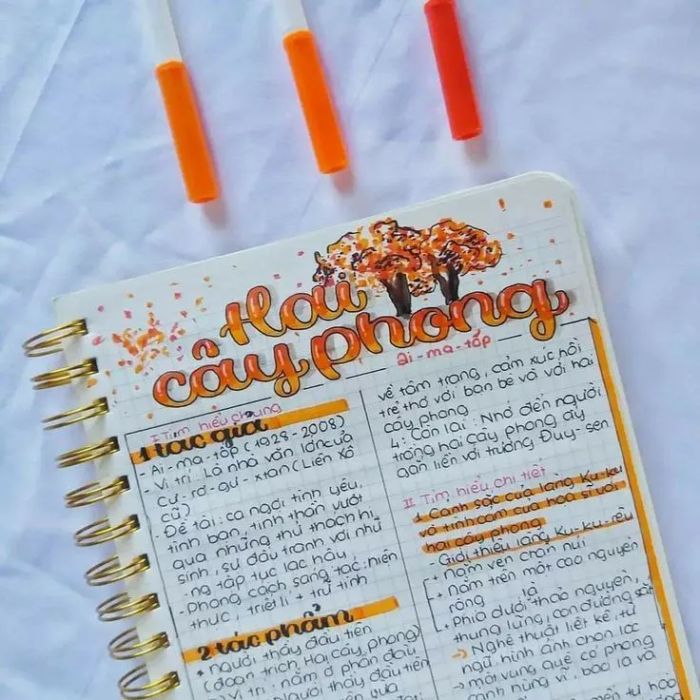 Hai
cây phong
ai-ma-tốp
I Tìm hiểu chung
1 tác giả
- Ai-ma-tốp (1928-2008)
- Vị trí: Là nhà văn lớn của
Cư-rơ-gư-xtan (Liên Xô
cũ)
- Đề tài: ca ngợi tình yêu,
tình bạn, tinh thần vượt
qua những thử thách hi
sinh, sự đấu tranh với nhữ
-ng tập tục lạc hậu
- Phong cách sáng tác: hiện
thực, triết lí + trữ tình
2 tác phẩm
* Người thầy đầu tiên
(đoạn trích Hai cây phong)
- Vị trí: nằm ở phần đầu
Người thầy đầu tiên
về tâm trạng, cảm xúc hồi
trẻ thơ với bạn bè và với hai
cây phong
4: Còn lại: Nhớ đến người
trồng hai cây phong ấy
gắn liền với trường Đuy-sen
II Tìm hiểu chi tiết
1 Cảnh sắc của làng Ku-ku
và tình cảm của họa sĩ với
hai cây phong
- Giới thiệu làng Ku-ku-rêu
+ nằm ven chân núi
+ nằm trên một cao nguyên
rộng
+ Phía dưới là thảo nguyên,
thung lũng, con đường sắt
→ Nghệ thuật liệt kê, từ
ngữ, hình ảnh chọn lọc
→ một vùng quê có phong
bao la và